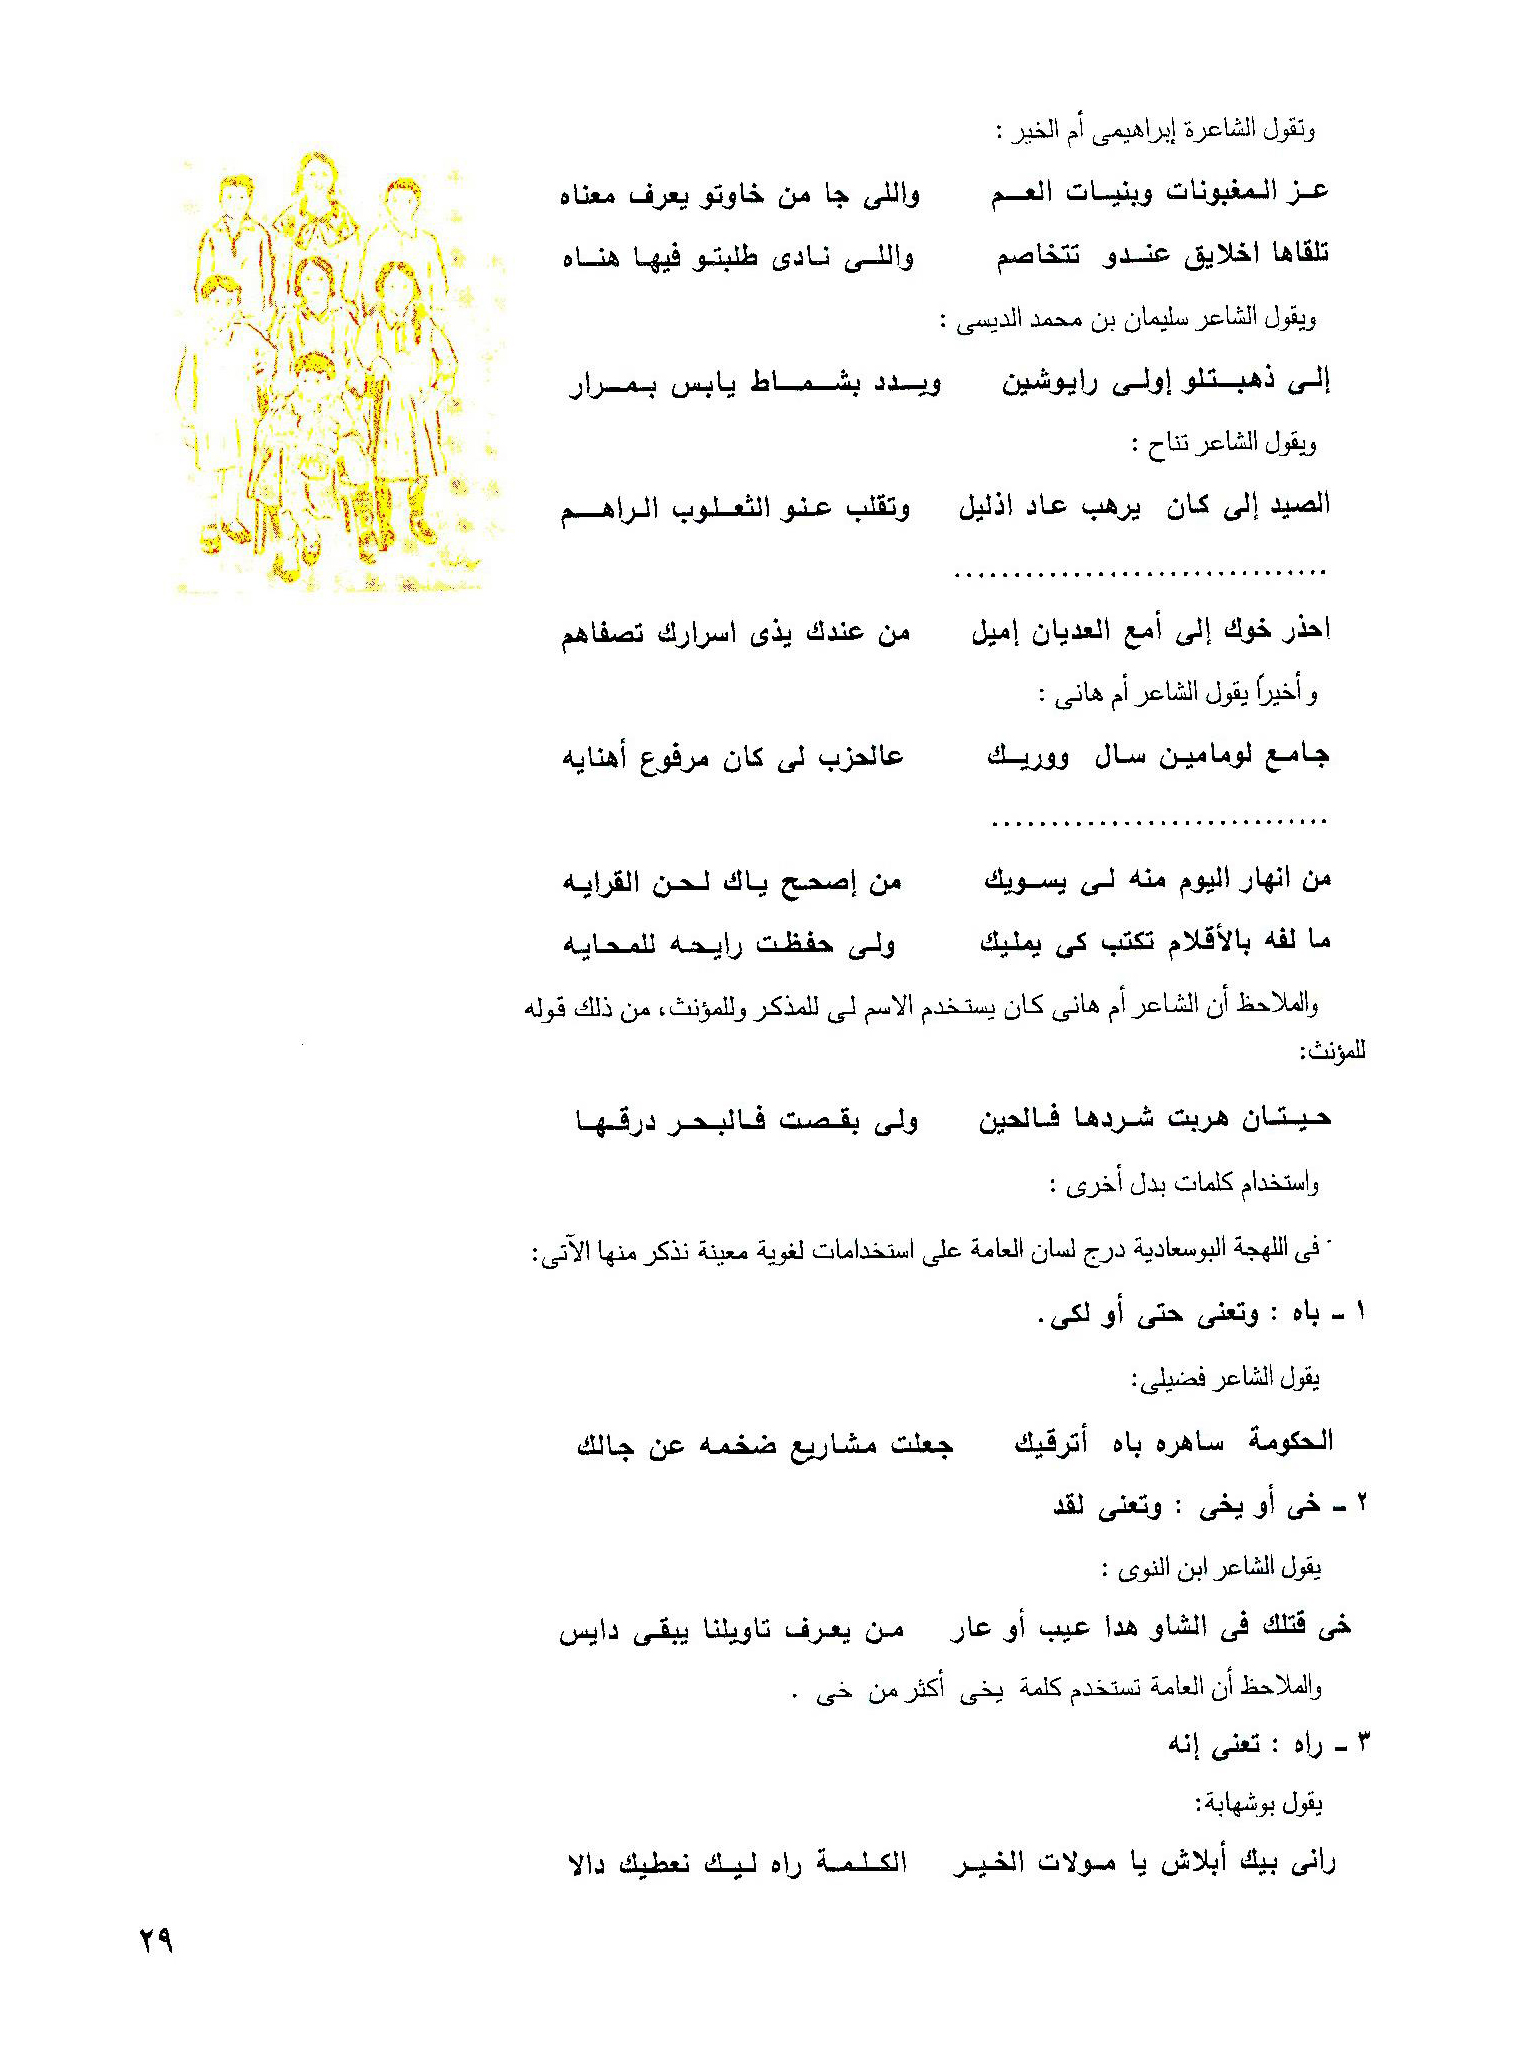 وتقول الشاعرة إبراهيمى أم الخير :
عـز المغبونات وبنيـات العـم واللى جا من خاوتو يعرف معناه
تلقاها اخلايق عنـدو تتخاصم واللـى نـادى طلبتـو فيهـا هنـاه
ويقول الشاعر سليمان بن محمد الديسى :
إلـى ذهبـتلو إولـى رايوشين ويـدد بشـمـاط يابس بـمـرار
ويقول الشاعر تناح :
الصيد إلى كان يرهب عاد اذليل وتقلب عنو الثعلوب الراهـم
................................
احذر خوك إلى أمع العديان إميل من عندك يذى اسرارك تصفاهم
و أخيراً يقول الشاعر أم هانى :
جامع لومامين سال ووريـك عالحزب لى كان مرفوع أهنايه
.............................
من انهار اليوم منه لـى يسـويك من إصحح ياك لحن القرايه
ما لفه بالأقلام تكتب كى يمليك ولـى حفظت رايحه للمحايه
والملاحظ أن الشاعر أم هانى كان يستخدم الاسم لى للمذكر وللمؤنث، من ذلك قوله
للمؤنث:
حيـتـان هربت شردها فالحين ولى بقصت فالبحر درقـهـا
واستخدام كلمات بدل أخرى :
فى اللهجة البوسعادية درج لسان العامة على استخدامات لغوية معينة نذكر منها الآتى:
١ - باه : وتعنى حتى أو لكى.
يقول الشاعر فضيلى:
الحكومة ساهره باه أترقيك جعلت مشاريع ضخمه عن جالك
٢ - خى أو يخى : وتعنى لقد
يقول الشاعر ابن النوى :
خى قتلك فى الشاو هدا عيب أو عار من يعرف تاويلنا يبقى دايس
والملاحظ أن العامة تستخدم كلمة يخى أكثر من خى .
٣ - راه : تعنى إنه
يقول بوشهابة:
رانى بيك أبلاش يا مولات الخيـر الكلـمـة راه ليـك نعطيك دالا
٢٩